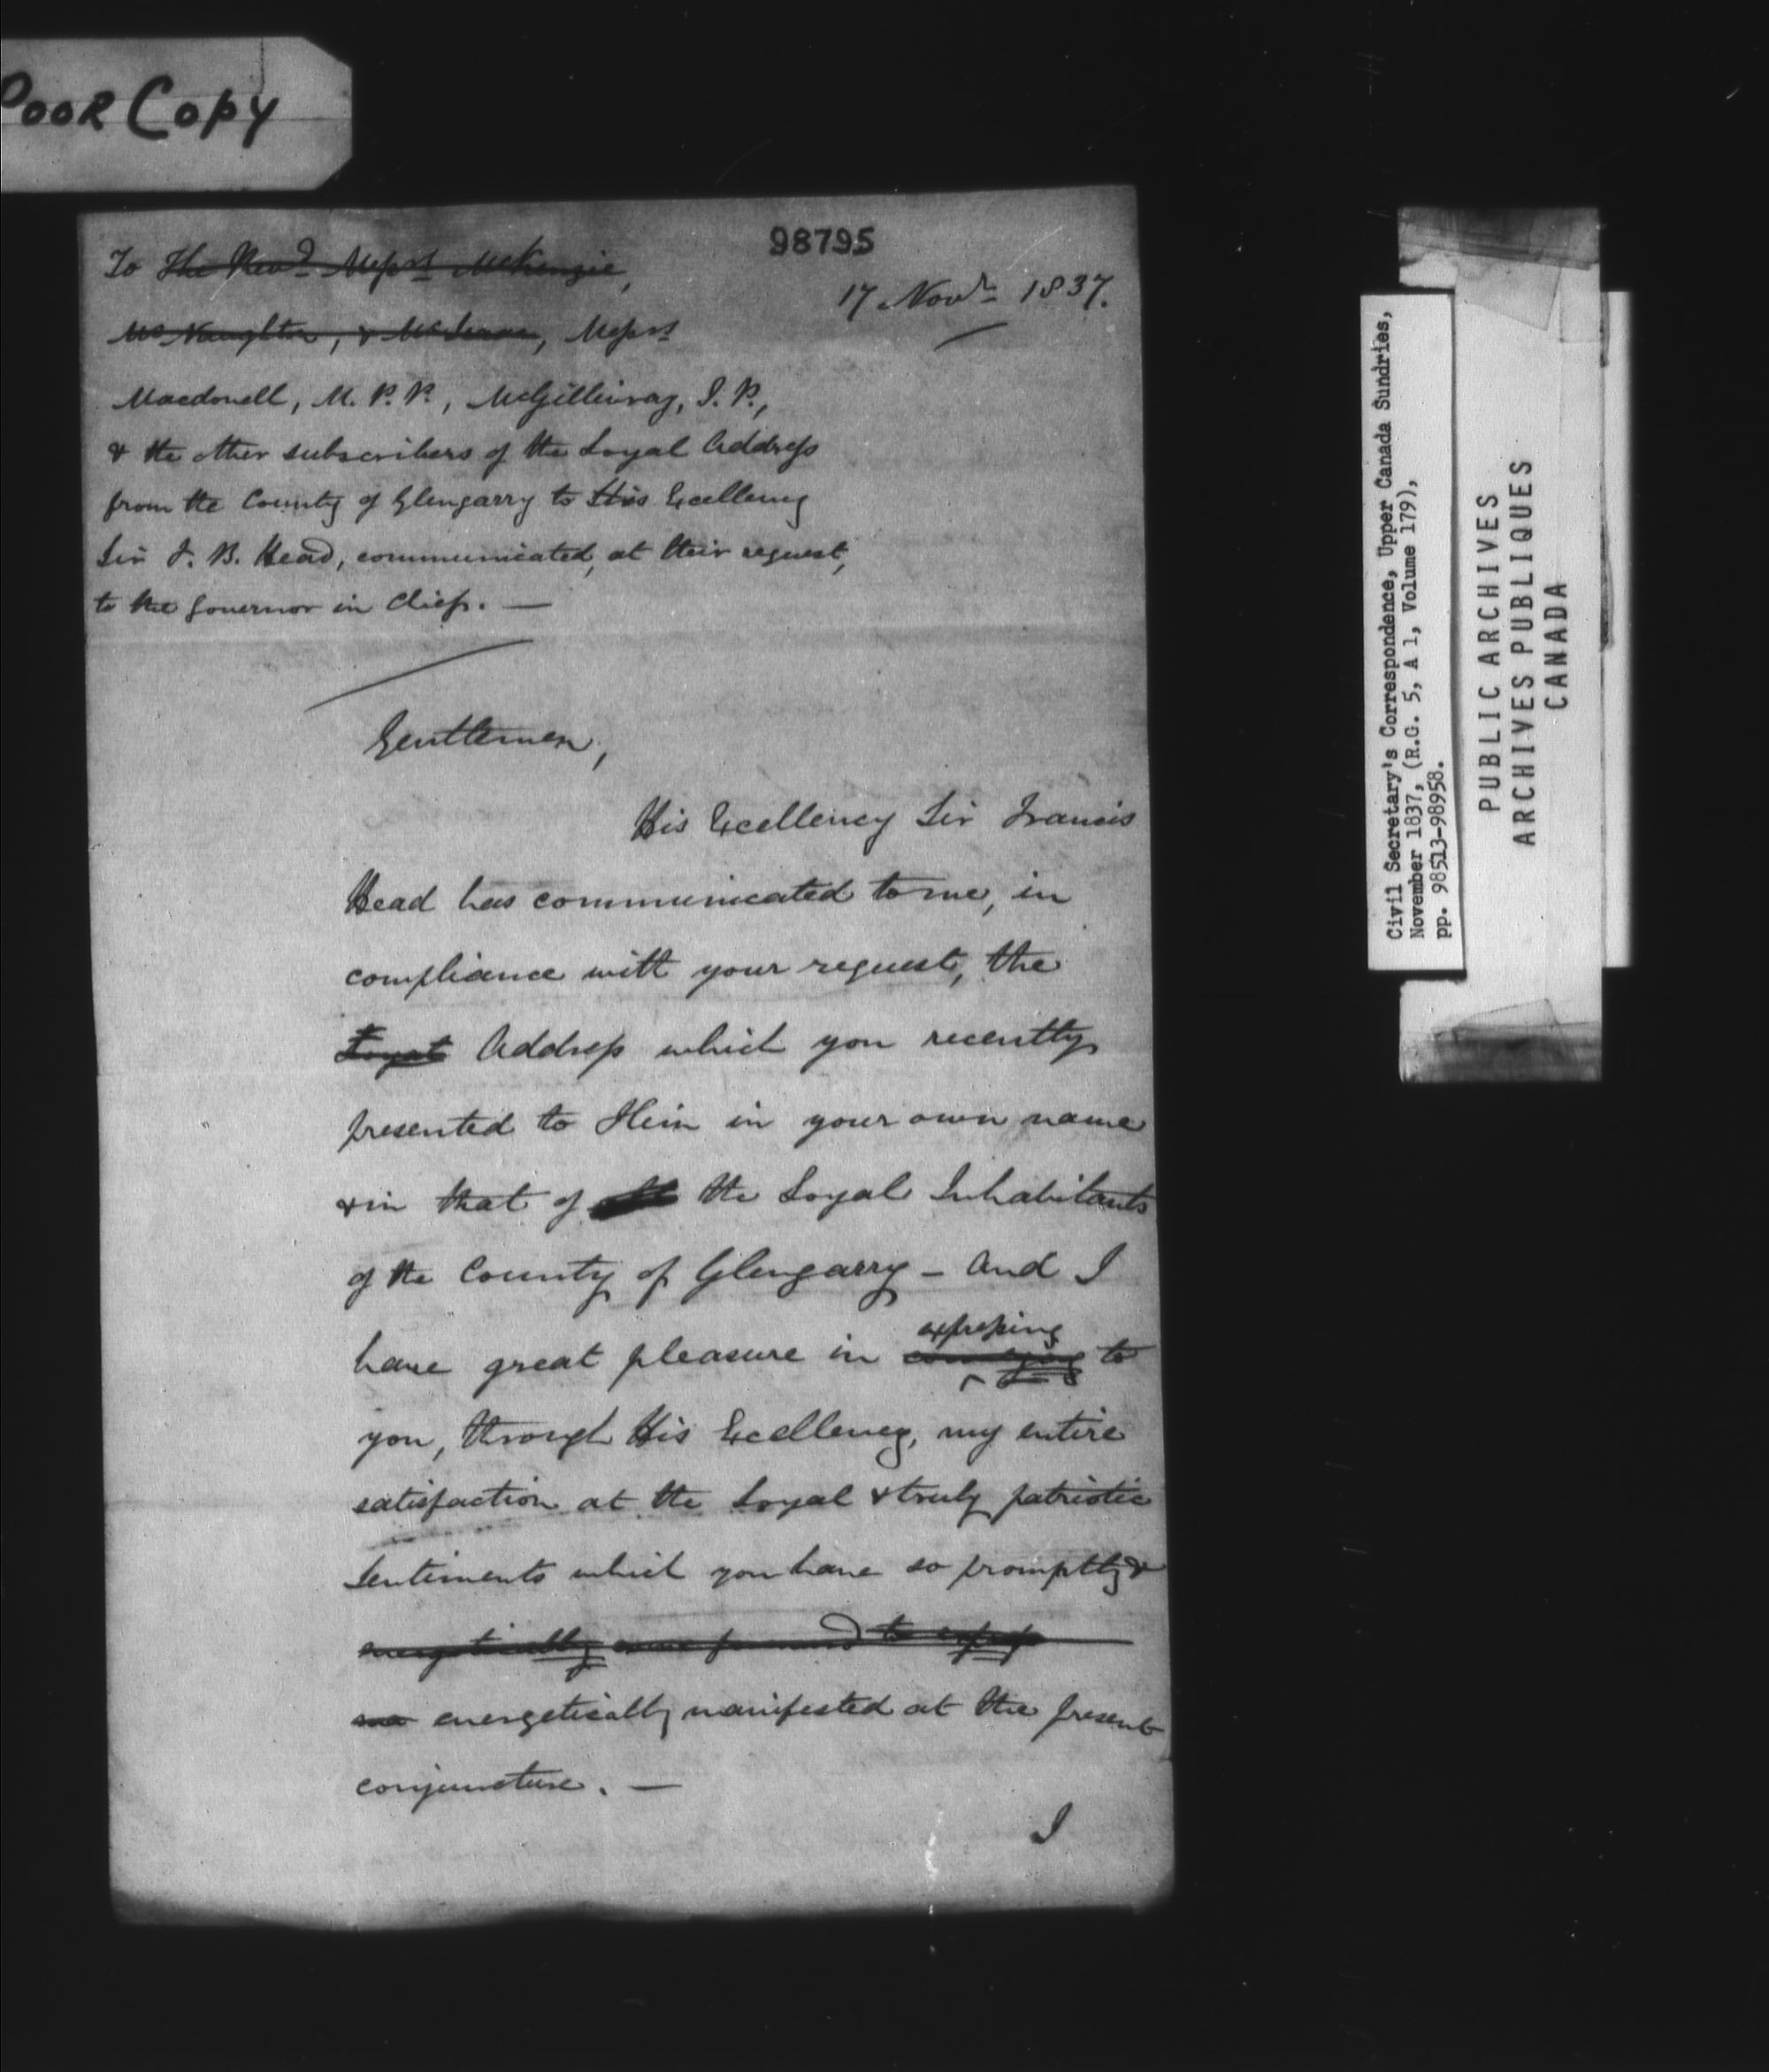 POOR COPY
98795
To The Revd. Messrs McKenzie,
17 Novr 1837.
McNaughton, & McIsaac, Messrs
Macdonell, M.P.P., McGillivray, J.P.,
& the other subscribers of the Loyal Address
from the County of Glengarry to His Excellency
Sir F. B. Head, communicated, at their request,
to the Governor in Chief. —
Gentlemen,
His Excellency Sir Francis
Head has communicated to me, in
compliance with your request, the
Loyal Address which you recently
presented to Him in your own name
& in that of the Loyal Inhabitants
of the County of Glengarry – and I
have great pleasure in conveying expressing to
you, through His Excellency, my entire
satisfaction at the Loyal & truly patriotic
sentiments which you have so promptly &
energetically come forward to express
so energetically manifested at the present
conjuncture. —
I
Civil Secretary's Correspondence, Upper Canada Sundries,
November 1837, (R.G. 5, A 1, Volume 179),
pp. 98513-98958.
PUBLIC ARCHIVES
ARCHIVES PUBLIQUES
CANADA